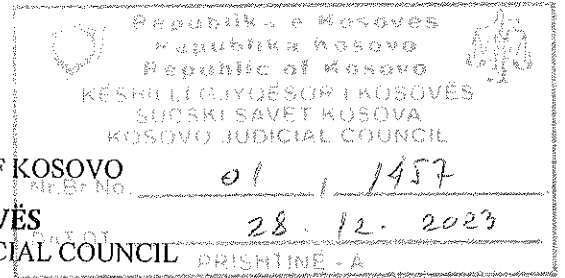 Republika e Kosovës
Republika Kosovo
Republic of Kosovo
KËSHILLI GJYQËSOR I KOSOVËS
SUDSKI SAVET KOSOVA
KOSOVO JUDICIAL COUNCIL
F KOSOVO
Nr.Br No. 01 / 1457
VËS
28. 12. 2023
CIAL COUNCIL
PRISHTINË - A